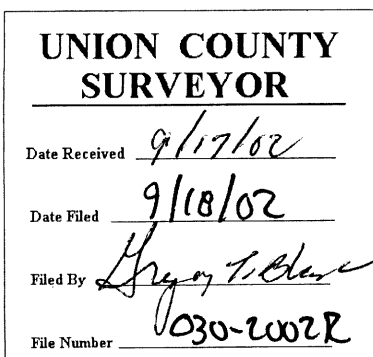 UNION COUNTY
SURVEYOR
Date Received 9/17/02
Date Filed 9/18/02
Filed By Gregory T. 
File Number 030-2002R